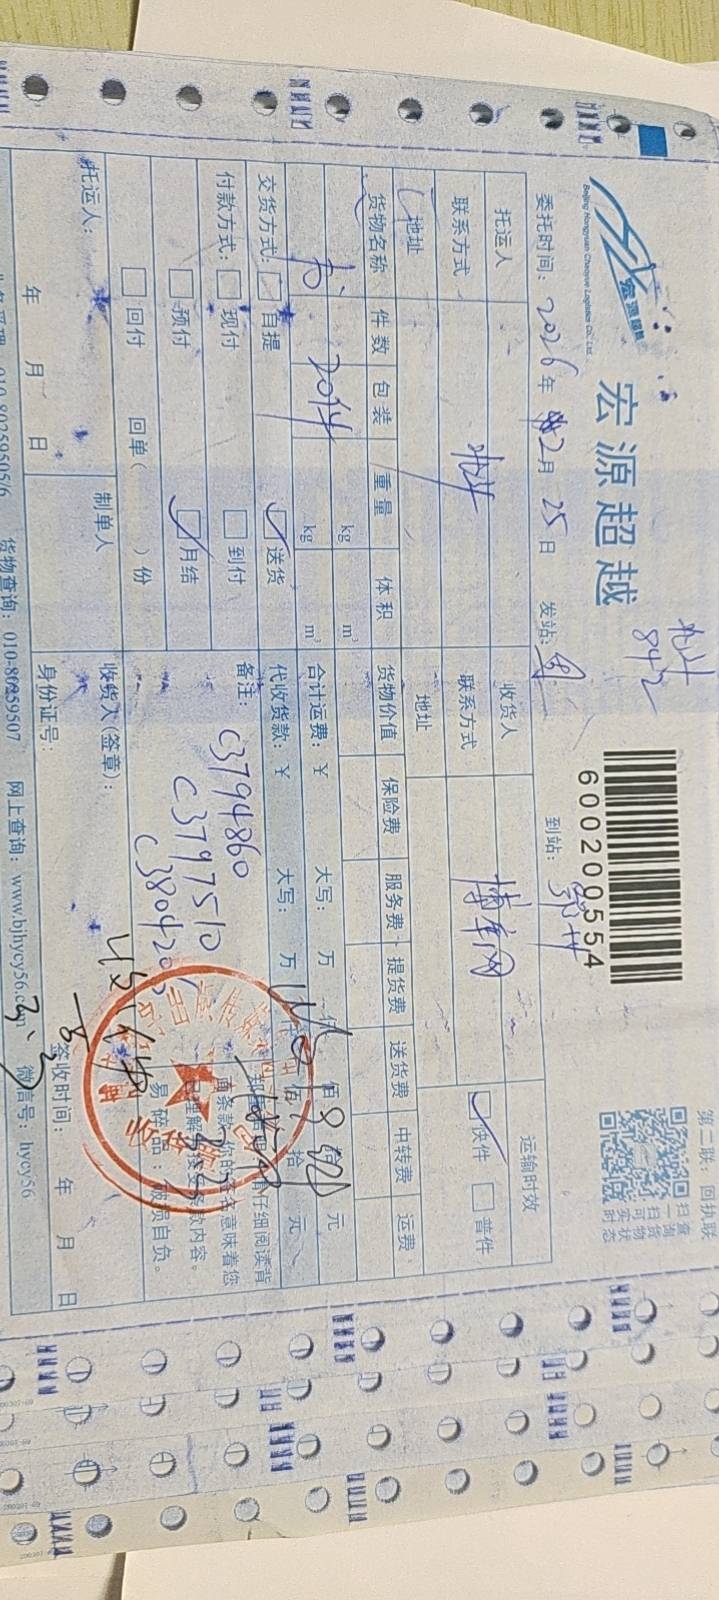 第二联：回执联
宏源超越
宏源超越
Beijing Hongyuan Chaoyue Logistics Co., Ltd.
北斗
842
600200554
扫一扫可实时
查询货物状态
委托时间：2026年2月25日 发站： 到站：
托运人 收货人 运输时效
联系方式 北斗 联系方式 博库网 快件 普件
地址 地址
货物名称 件数 包装 重量 体积 货物价值 保险费 服务费 提货费 送货费 中转费 运费
书 20件 kg m³
kg m³
合计运费：¥ 大写： 万 仟 佰 拾 元
交货方式： 自提 送货 代收货款：¥ 大写： 万 仟 佰 拾 元
付款方式： 现付 到付 备注：
预付 月结
回付 回单（ ）份
C3794860
C3797510
C3804203
易碎品：破损自负。
托运人： 制单人 收货人(签章)：
年 月 日 身份证号： 签收时间： 年 月 日
010-80259505/6 货物查询：010-80259507 网上查询：www.bjhycy56.com 微信号：hycy56